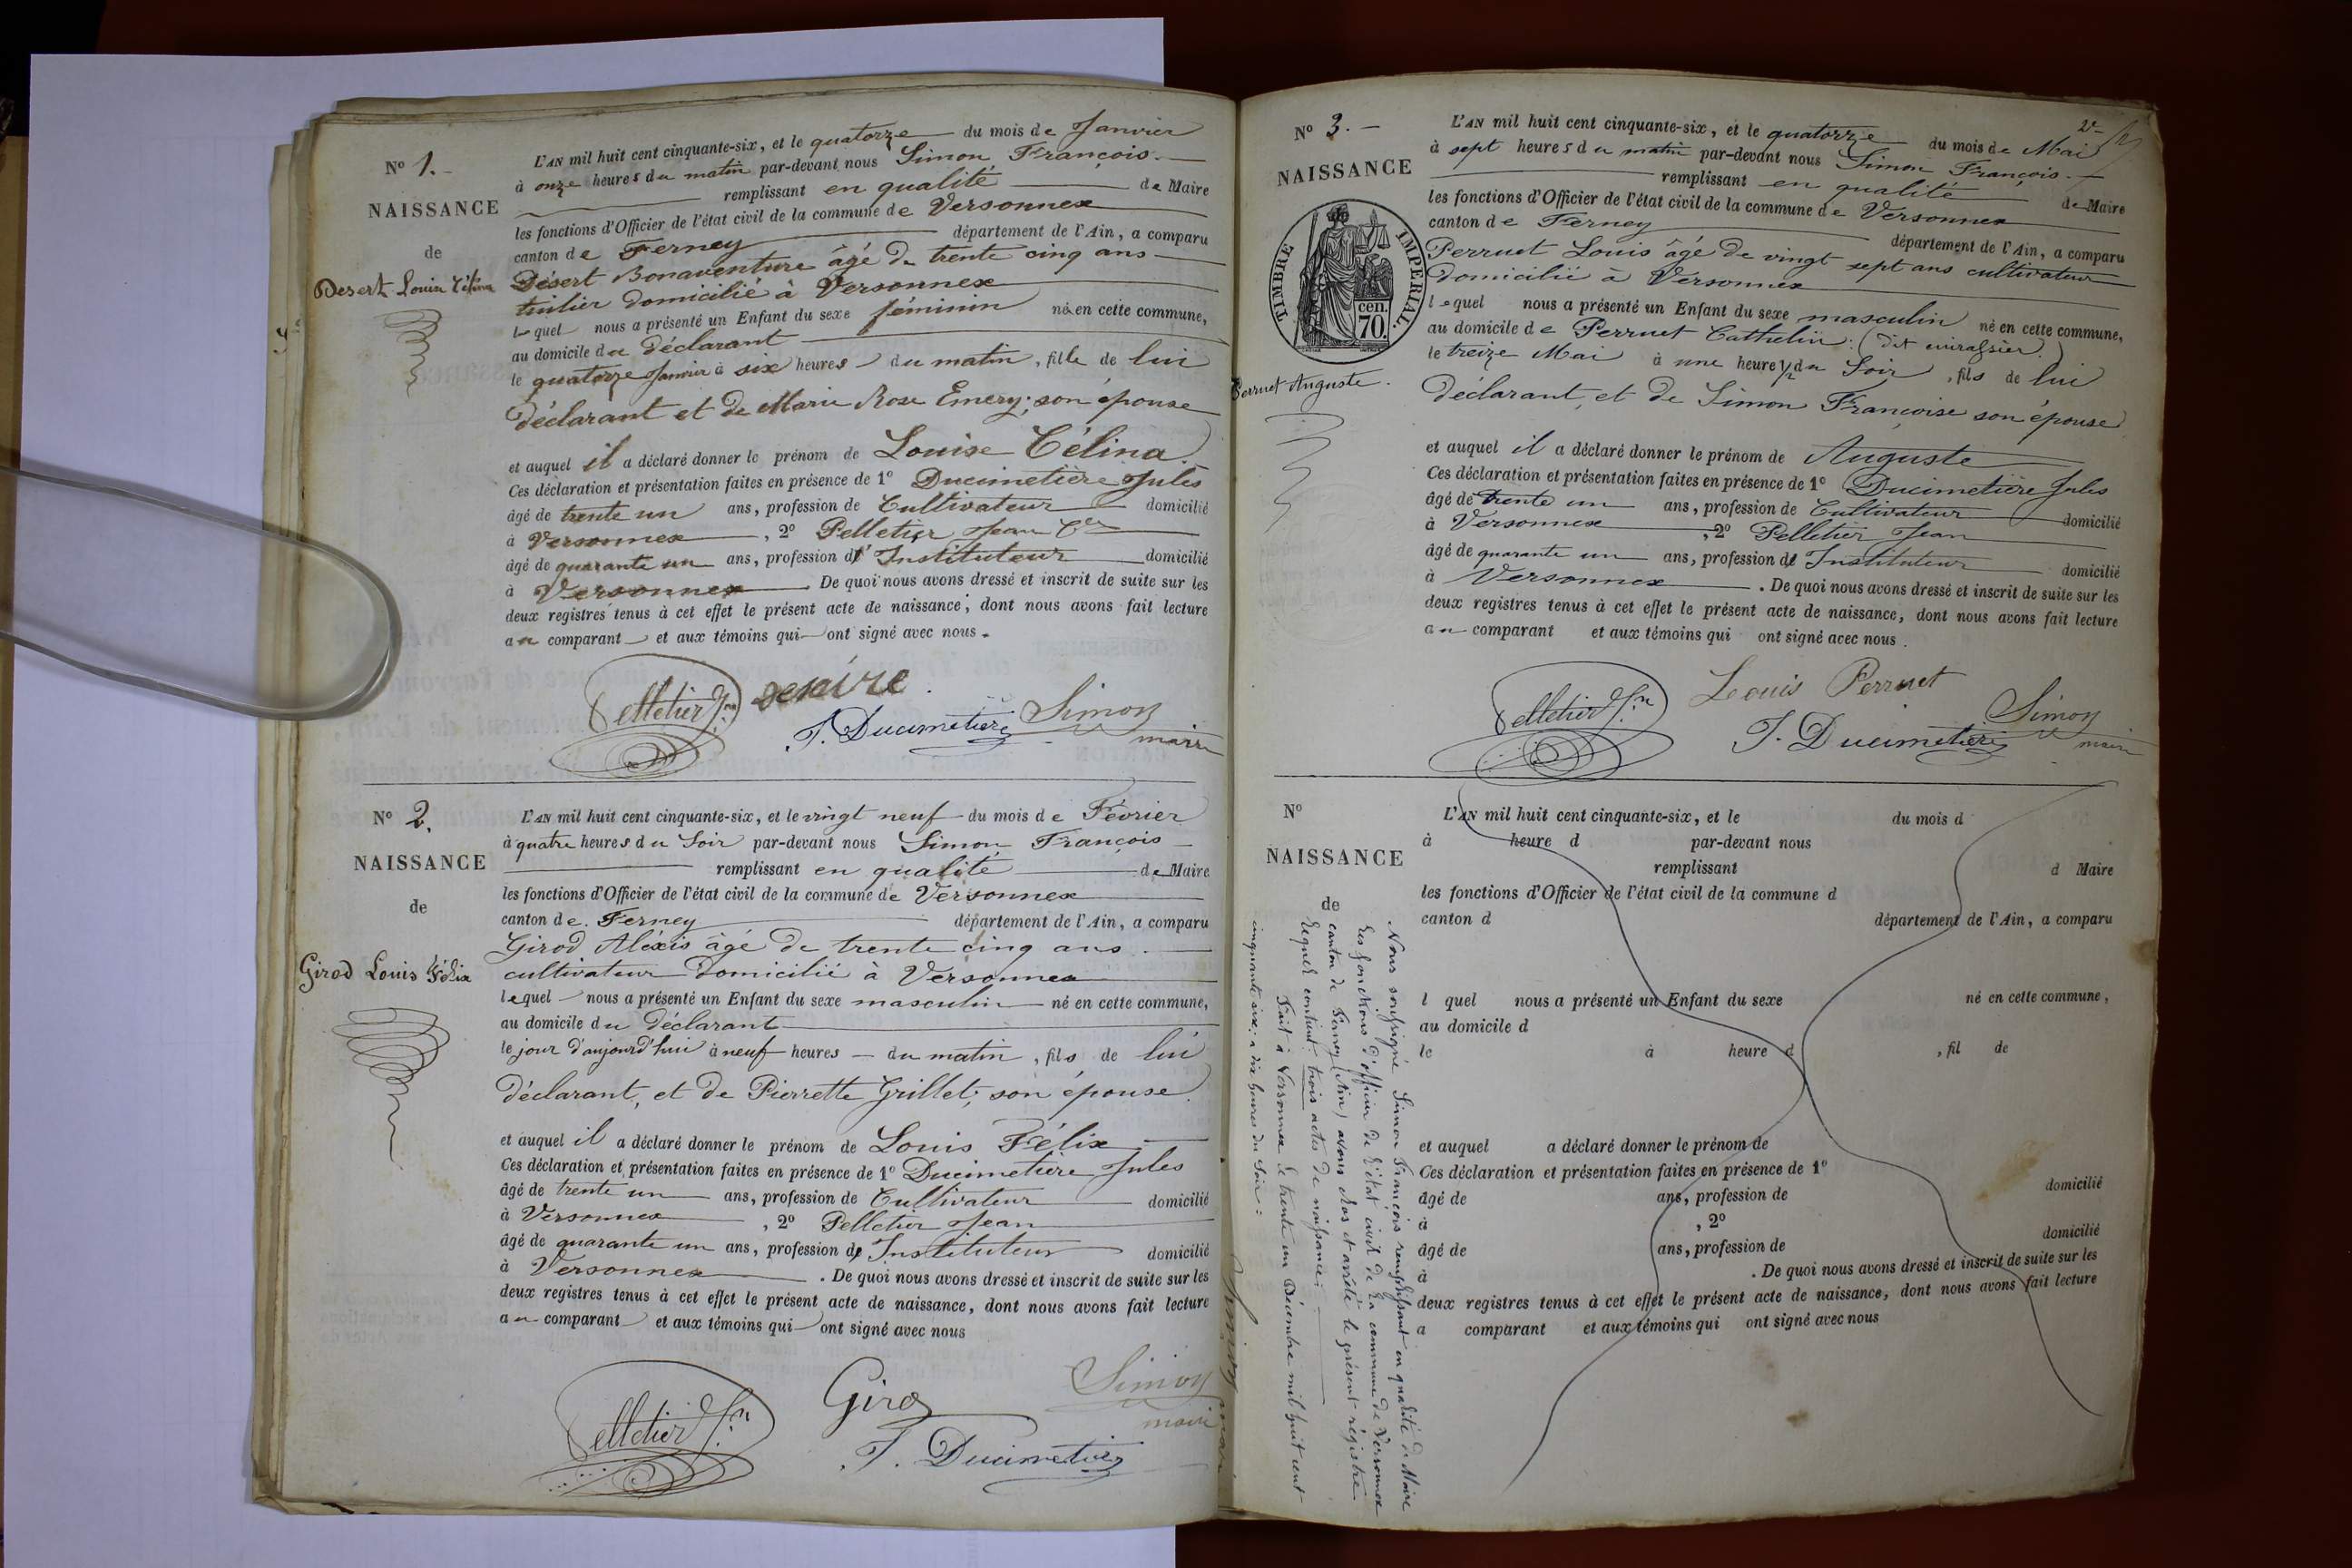 N° 1. -
NAISSANCE
de
Desert Louise Célina
L'AN mil huit cent cinquante-six, et le quatorze du mois de Janvier
à onze heures du matin par-devant nous Simon François. —
remplissant en qualité de Maire
les fonctions d'Officier de l'état civil de la commune de Versonnex
canton de Ferney département de l'Ain, a comparu
Désert Bonaventure âgé de trente cinq ans
tuilier domicilié à Versonnex
lequel nous a présenté un Enfant du sexe féminin née en cette commune,
au domicile du déclarant
le quatorze Janvier à six heures du matin, fille de lui
déclarant et de Marie Rose Emery; son épouse
et auquel il a déclaré donner le prénom de Louise Célina.
Ces déclaration et présentation faites en présence de 1° Ducimetière Jules
âgé de trente un ans, profession de Cultivateur domicilié
à Versonnex, 2° Pelletier Jean
âgé de quarante un ans, profession d' Instituteur domicilié
à Versonnex De quoi nous avons dressé et inscrit de suite sur les
deux registres tenus à cet effet le présent acte de naissance, dont nous avons fait lecture
au comparant et aux témoins qui ont signé avec nous.
Pelletier Jn
J. Ducimetière Simon
maire
N° 2.
NAISSANCE
de
Girod Louis Félix
L'AN mil huit cent cinquante-six, et le vingt neuf du mois de Février
à quatre heures du Soir par-devant nous Simon François
remplissant en qualité de Maire
les fonctions d'Officier de l'état civil de la commune de Versonnex
canton de Ferney département de l'Ain, a comparu
Girod Aléxis âgé de trente cinq ans
cultivateur domicilié à Versonnex
lequel nous a présenté un Enfant du sexe masculin né en cette commune,
au domicile du déclarant
le jour d'aujourd'hui à neuf heures du matin, fils de lui
déclarant, et de Pierrette Grillet; son épouse.
et auquel il a déclaré donner le prénom de Louis Félix
Ces déclaration et présentation faites en présence de 1° Ducimetière Jules
âgé de trente un ans, profession de Cultivateur domicilié
à Versonnex, 2° Pelletier Jean
âgé de quarante un ans, profession d' Instituteur domicilié
à Versonnex. De quoi nous avons dressé et inscrit de suite sur les
deux registres tenus à cet effet le présent acte de naissance, dont nous avons fait lecture
au comparant et aux témoins qui ont signé avec nous
Pelletier Jn Girod Simon
maire
J. Ducimetière
Simon maire
2e
N° 3. -
NAISSANCE
TIMBRE IMPERIAL.
cen.
70.
Perruet Auguste.
L'AN mil huit cent cinquante-six, et le quatorze du mois de Mai
à sept heures du matin par-devant nous Simon François. —
remplissant en qualité de Maire
les fonctions d'Officier de l'état civil de la commune de Versonnex
canton de Ferney département de l'Ain, a comparu
Perruet Louis âgé de vingt sept ans cultivateur
domicilié à Versonnex
lequel nous a présenté un Enfant du sexe masculin né en cette commune,
au domicile de Perruet Cathelin: (dit cuirassier.)
le treize Mai à une heure 1/2 du Soir, fils de lui
déclarant, et de Simon Françoise son épouse
et auquel il a déclaré donner le prénom de Auguste
Ces déclaration et présentation faites en présence de 1° Ducimetière Jules
âgé de trente un ans, profession de Cultivateur domicilié
à Versonnex, 2° Pelletier Jean
âgé de quarante un ans, profession d' Instituteur domicilié
à Versonnex. De quoi nous avons dressé et inscrit de suite sur les
deux registres tenus à cet effet le présent acte de naissance, dont nous avons fait lecture
au comparant et aux témoins qui ont signé avec nous.
Pelletier Jn Louis Perruet Simon
J. Ducimetière maire
N°
NAISSANCE
de
L'AN mil huit cent cinquante-six, et le du mois d
à heure d par-devant nous
remplissant d Maire
les fonctions d'Officier de l'état civil de la commune d
canton d département de l'Ain, a comparu
l quel nous a présenté un Enfant du sexe né en cette commune,
au domicile d
le à heure d, fil de
et auquel a déclaré donner le prénom de
Ces déclaration et présentation faites en présence de 1°
âgé de ans, profession de domicilié
à, 2°
âgé de ans, profession de domicilié
à. De quoi nous avons dressé et inscrit de suite sur les
deux registres tenus à cet effet le présent acte de naissance, dont nous avons fait lecture
a comparant et aux témoins qui ont signé avec nous
Nous soussigné Simon François remplissant en qualité de Maire
les fonctions d'officier de l'état civil de la commune de Versonnex
canton de Ferney (Ain) avons clos et arrêté le présent régistre
lequel contient trois actes de naissance;
Fait à Versonnex le trente un Décembre mil huit cent
cinquante six; à dix heures du Soir: